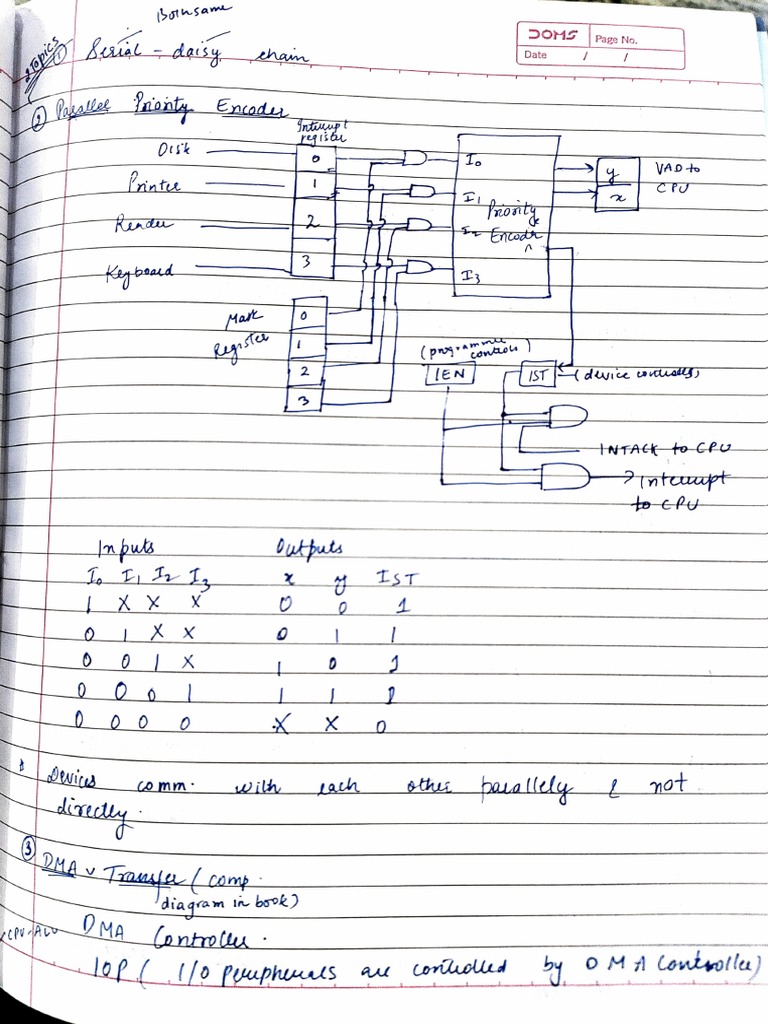 Both same
2 Topics
① Serial - daisy chain
DOMS
Page No.
Date / /
② Parallel Priority Encoder
Interrupt register
Disk 0 I0
Printer 1 I1
Reader 2 I2
Keyboard 3 I3
Priority Encoder
y
x
VAD to CPU
Mask Register
0
1
2
3
(programme controls)
IEN
IST
(device controlled)
INTACK to CPU
Interrupt to CPU
Inputs Outputs
I0 I1 I2 I3 x y IST
1 X X X 0 0 1
0 1 X X 0 1 1
0 0 1 X 1 0 1
0 0 0 1 1 1 1
0 0 0 0 X X 0
Devices comm. with each other parallely & not
directly.
③ DMA Transfer (comp.
diagram in book)
CPU-ALU DMA Controller.
IOP ( I/O peripherals are controlled by DMA Controller)